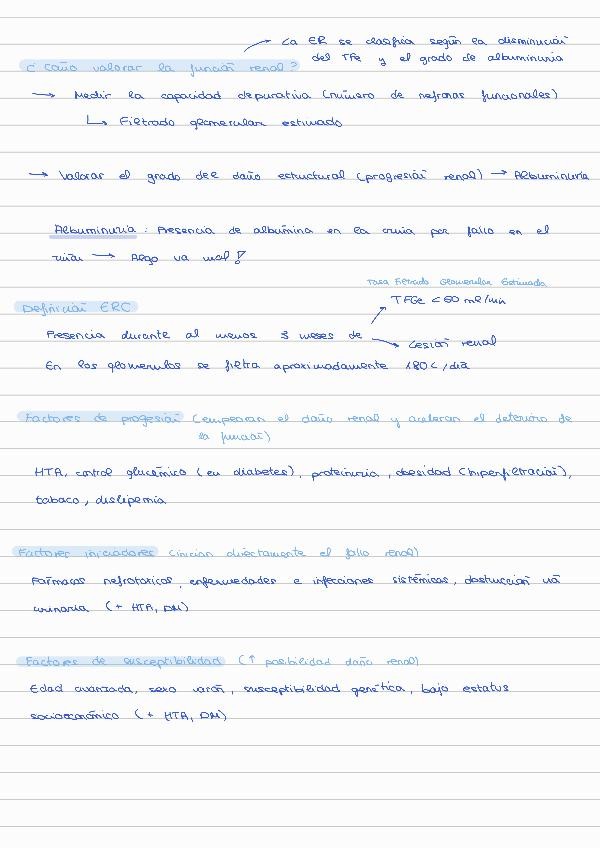 → La ER se clasifica según la disminución
del TFe y el grado de albuminuria
¿Cómo valorar la función renal?
→ Medir la capacidad depurativa (número de nefronas funcionales)
↳ Filtrado glomerular estimado
→ Valorar el grado del daño estructural (progresión renal) → Albuminuria
Albuminuria: Presencia de albúmina en la orina por fallo en el
riñón → Algo va mal!
Tasa Filtrado Glomerular Estimada
TFGe < 60 ml/min
Definición ERC
Presencia durante al menos 3 meses de
Lesión renal
En los glomerulos se filtra aproximadamente 180L/día
Factores de progesión (empeoran el daño renal y aceleran el deterioro de
la función)
HTA, control glucémico (en diabetes), proteinuria, obesidad (hiperfiltración),
tabaco, dislipemia
Factores iniciadores (inician directamente el fallo renal)
Fármacos nefrotóxicos, enfermedades e infecciones sistémicas, obstrucción vía
urinaria (+ HTA, DM)
Factores de susceptibilidad (↑ posibilidad daño renal)
Edad avanzada, sexo varón, susceptibilidad genética, bajo estatus
socioeconómico (+ HTA, DM)